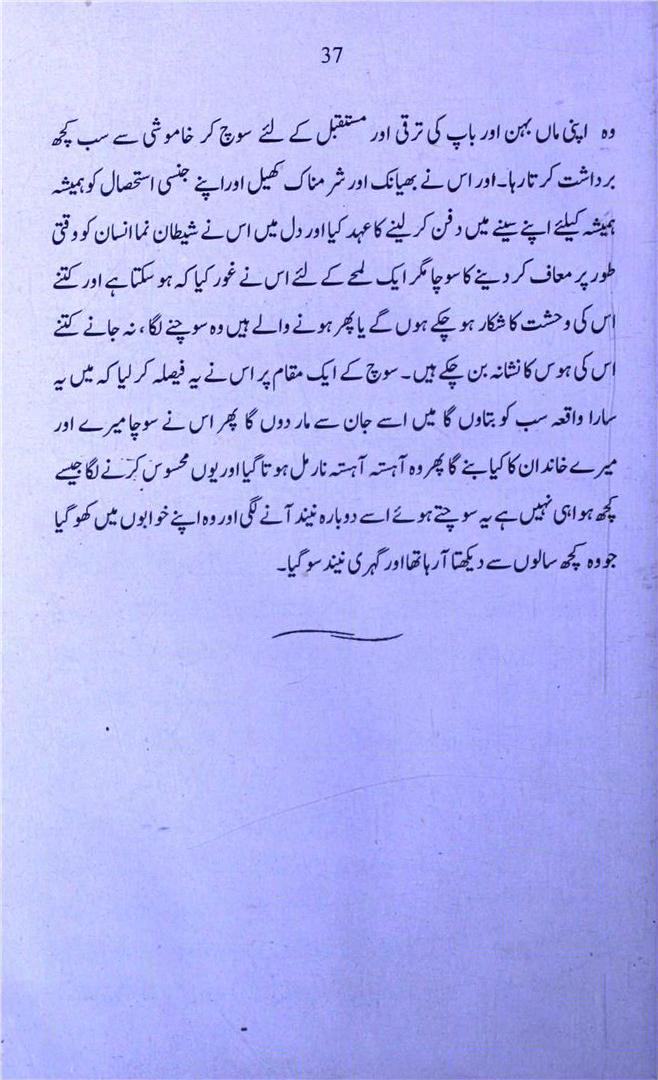 37
وہ اپنی ماں بہن اور باپ کی ترقی اور مستقبل کے لئے سوچ کر خاموشی سے سب کچھ
برداشت کرتا رہا۔ اور اس نے بھیانک اور شرمناک کھیل اور اپنے جنسی استحصال کو ہمیشہ
ہمیشہ کیلئے اپنے سینے میں دفن کر لینے کا عہد کیا اور دل میں اس نے شیطان نما انسان کو وقتی
طور پر معاف کر دینے کا سوچا مگر ایک لمحے کے لئے اس نے غور کیا کہ ہو سکتا ہے اور کتنے
اس کی وحشت کا شکار ہو چکے ہوں گے یا پھر ہونے والے ہیں وہ سوچنے لگا، نہ جانے کتنے
اس کی ہوس کا نشانہ بن چکے ہیں۔ سوچ کے ایک مقام پر اس نے یہ فیصلہ کر لیا کہ میں یہ
سارا واقعہ سب کو بتاوں گا میں اسے جان سے مار دوں گا پھر اس نے سوچا میرے اور
میرے خاندان کا کیا بنے گا پھر وہ آہستہ آہستہ نارمل ہوتا گیا اور یوں محسوس کرنے لگا جیسے
کچھ ہوا ہی نہیں ہے یہ سوچتے ہوئے اسے دوبارہ نیند آنے لگی اور وہ اپنے خوابوں میں کھو گیا
جو وہ کچھ سالوں سے دیکھتا آ رہا تھا اور گہری نیند سو گیا۔